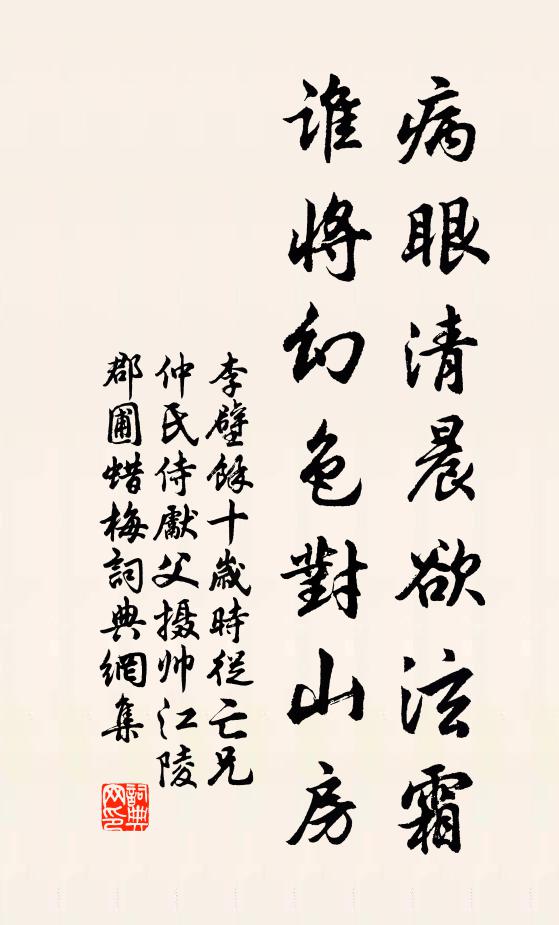 病眼清晨欲泫霜
谁將幻色對山房
李壁餘十歲時從亡兄
仲氏侍獻父摄帅江陵
郡圃蜡梅詞典網集
詞典网印